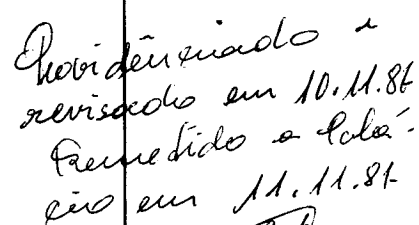 Providênciado e
revisado em 10.11.86
Remetido a Palá-
cio em 11.11.86